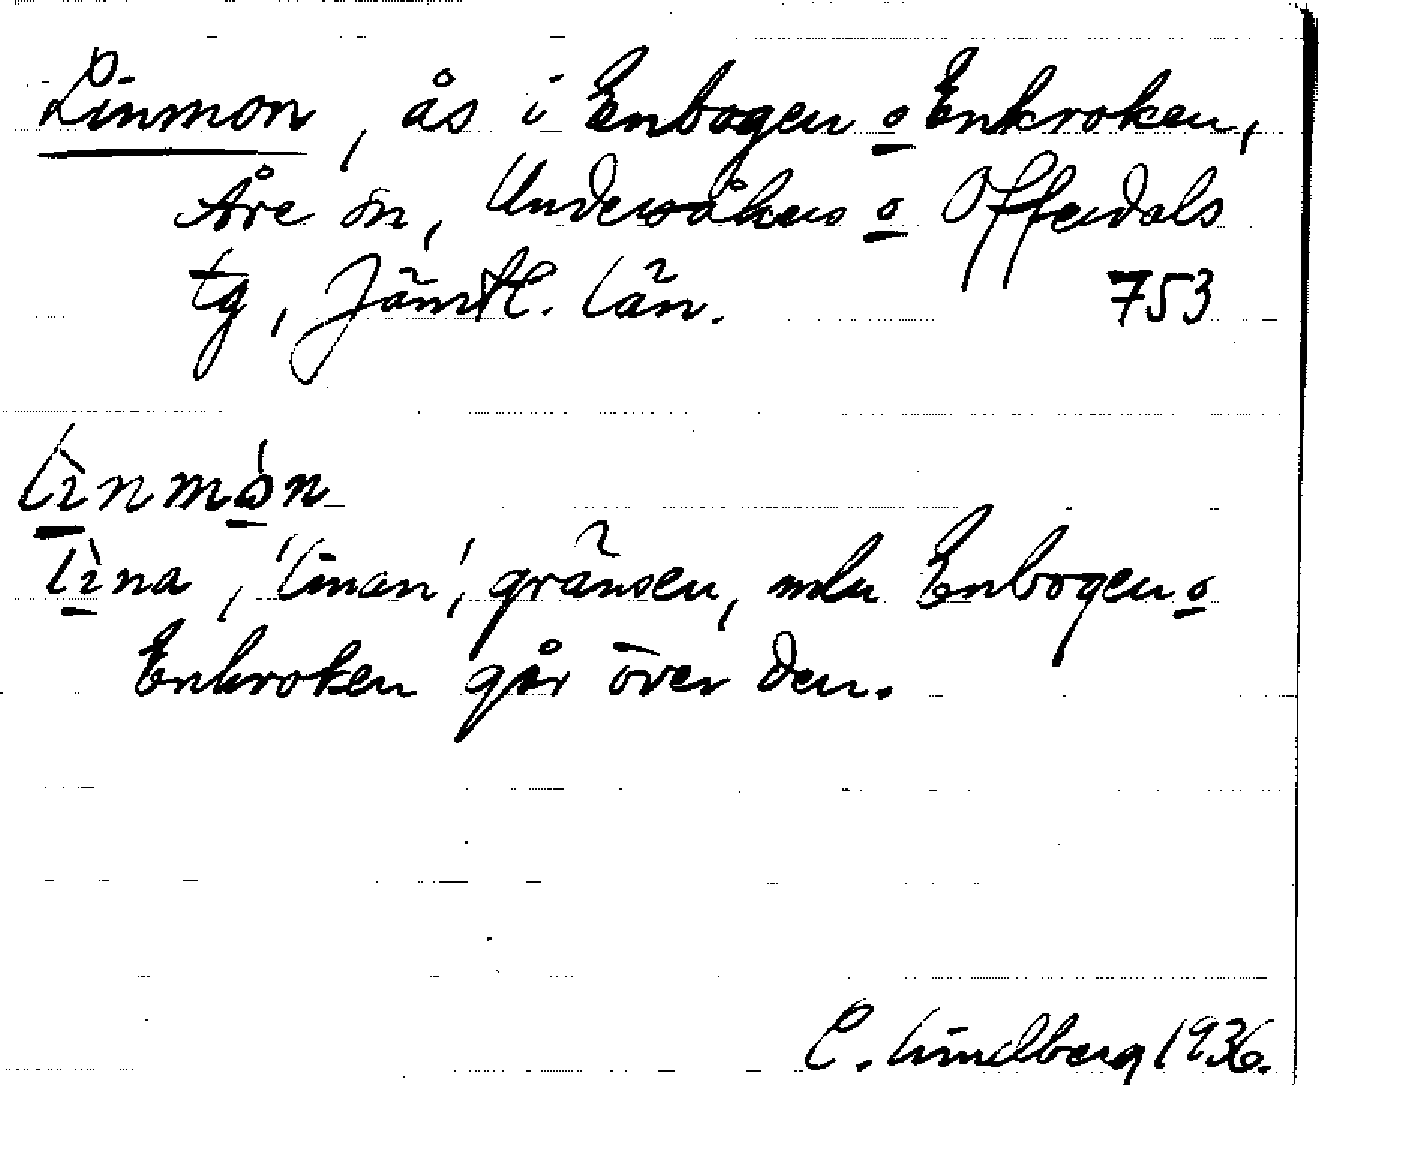 Linmon, ås i Enbogen o Enkroken,
Åre sn, Undersåkers o Offerdals
tg, Jämtl. län. 753
lìnmón
lìna, 'linan', gränsen, mln Enbogen o
Enkroken går över den.
C. Lindberg 1936.